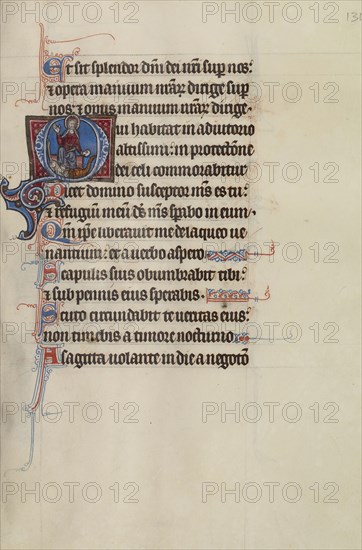 131
Et sit splendor dñi dei nr̃i sup nos:
⁊ opera manuum nr̃ar̃ dirige sup
nos: ⁊ opus manuum nr̃ar̃ dirige.
Qui habitat in adiutorio
altissimi: in protectõne
dei celi commorabitur
Dicet domino susceptor m̃s es tu:
⁊ refugiũ meũ d̃s m̃s sp̃abo in eum.
Qm̃ ip̃e liberauit me de laqueo ue
nantium: et a uerbo aspero
Scapulis suis obumbrabit tibi:
⁊ sub pennis eius sperabis.
Scuto circundabit te ueritas eius:
non timebis a timore nocturno
A sagitta uolante in die a negotõ
PHOTO 12 PHOTO 12 PHOTO 12
PHOTO 12 PHOTO 12 PHOTO 12
PHOTO 12 PHOTO 12 PHOTO 12
PHOTO 12 PHOTO 12 PHOTO 12
PHOTO 12 PHOTO 12 PHOTO 12
PHOTO 12 PHOTO 12 PHOTO 12